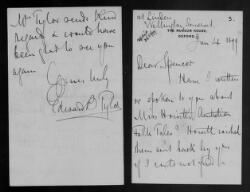 Mr Tylor sends kind
regards & would have
been glad to see you
again
Yours truly
Edward B Tylor
Linden
Wellington, Somerset
THE MUSEUM HOUSE,
OXFORD.
Jan 4 1899
3.
Dear Spencer
Have I written
or spoken to you about
Miss
Folk Tales? Howitt sent
them back by you
if I